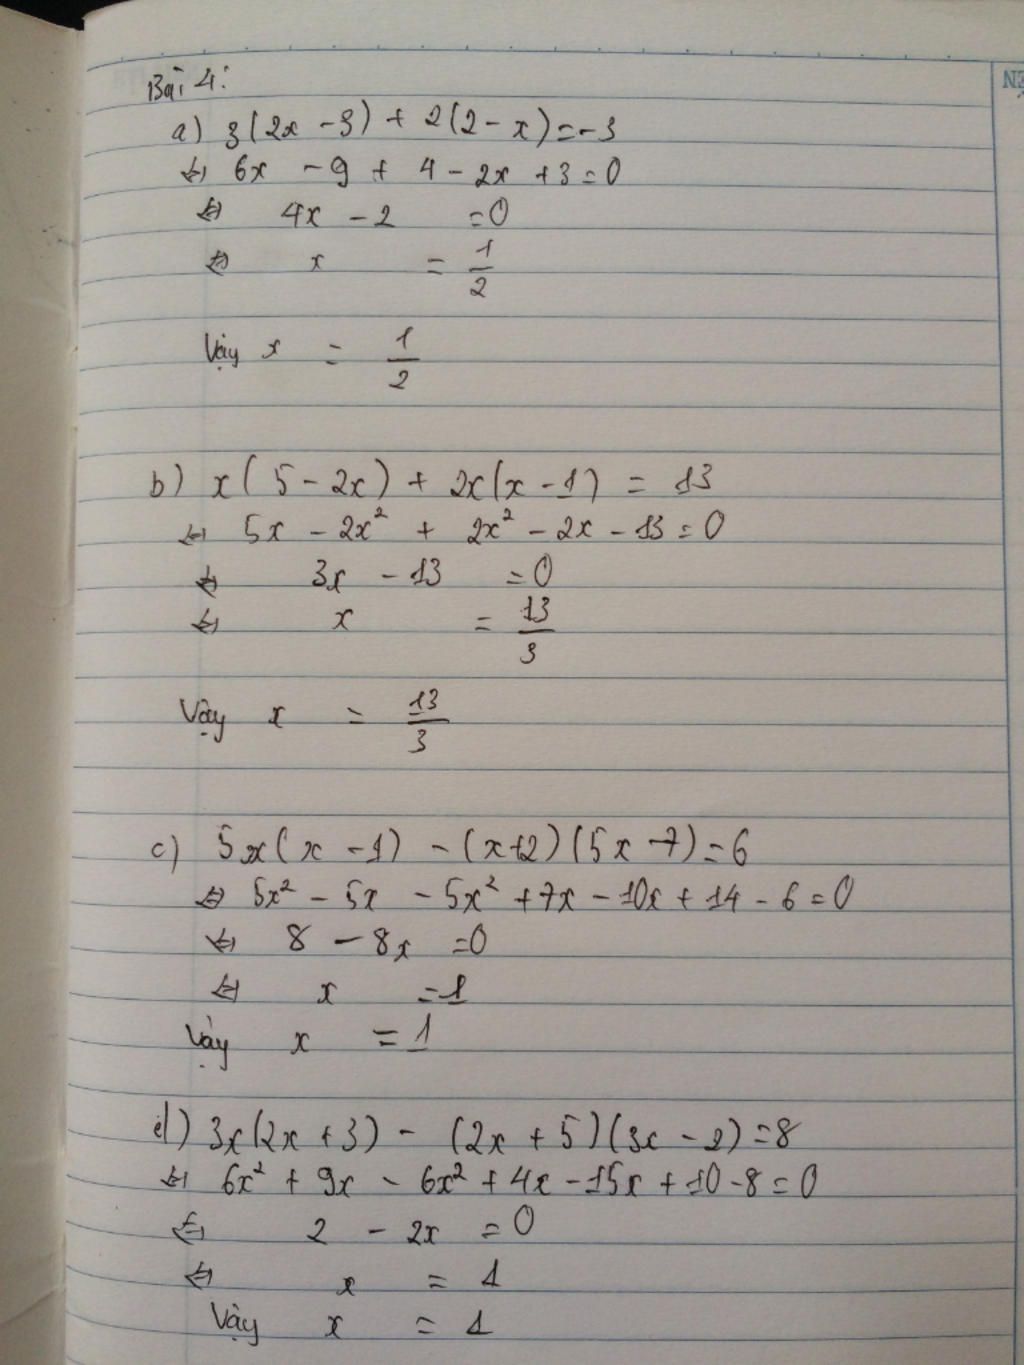 Bài 4:
a) 3(2x - 3) + 2(2 - x) = -3
⇔ 6x - 9 + 4 - 2x + 3 = 0
⇔ 4x - 2 = 0
⇔ x = 1/2
Vậy x = 1/2
b) x(5 - 2x) + 2x(x - 1) = 13
⇔ 5x - 2x² + 2x² - 2x - 13 = 0
⇔ 3x - 13 = 0
⇔ x = 13/3
Vậy x = 13/3
c) 5x(x - 1) - (x+2)(5x - 7) = 6
⇔ 5x² - 5x - 5x² + 7x - 10x + 14 - 6 = 0
⇔ 8 - 8x = 0
⇔ x = 1
Vậy x = 1
d) 3x(2x + 3) - (2x + 5)(3x - 2) = 8
⇔ 6x² + 9x - 6x² + 4x - 15x + 10 - 8 = 0
⇔ 2 - 2x = 0
⇔ x = 1
Vậy x = 1